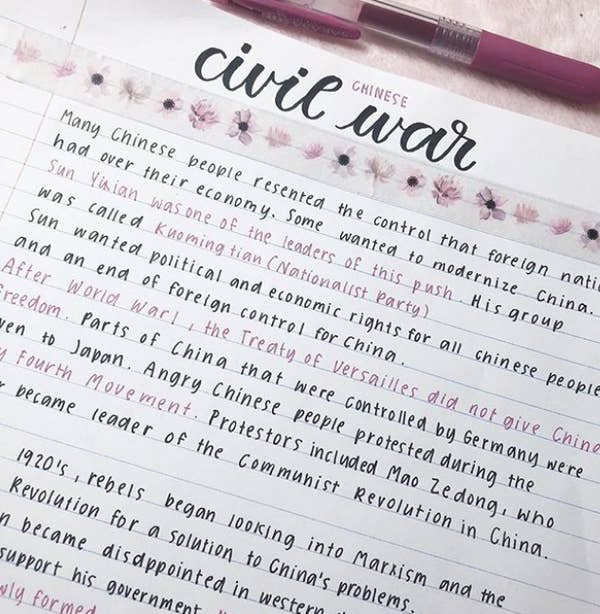 CHINESE
civil war
Many Chinese people resented the control that foreign nati
had over their economy. Some wanted to modernize China.
Sun Yixian was one of the leaders of this push. His group
was called Kuomingtian (Nationalist Party)
Sun wanted political and economic rights for all chinese people
and an end of foreign control for China.
After World War I, the Treaty of Versailles did not give China
freedom. Parts of China that were controlled by Germany were
ven to Japan. Angry Chinese people protested during the
y Fourth Movement. Protestors included Mao Zedong, who
became leader of the Communist Revolution in China.
1920's, rebels began looking into Marxism and the
Revolution for a solution to China's problems.
n became disappointed in western
support his government
wly formed